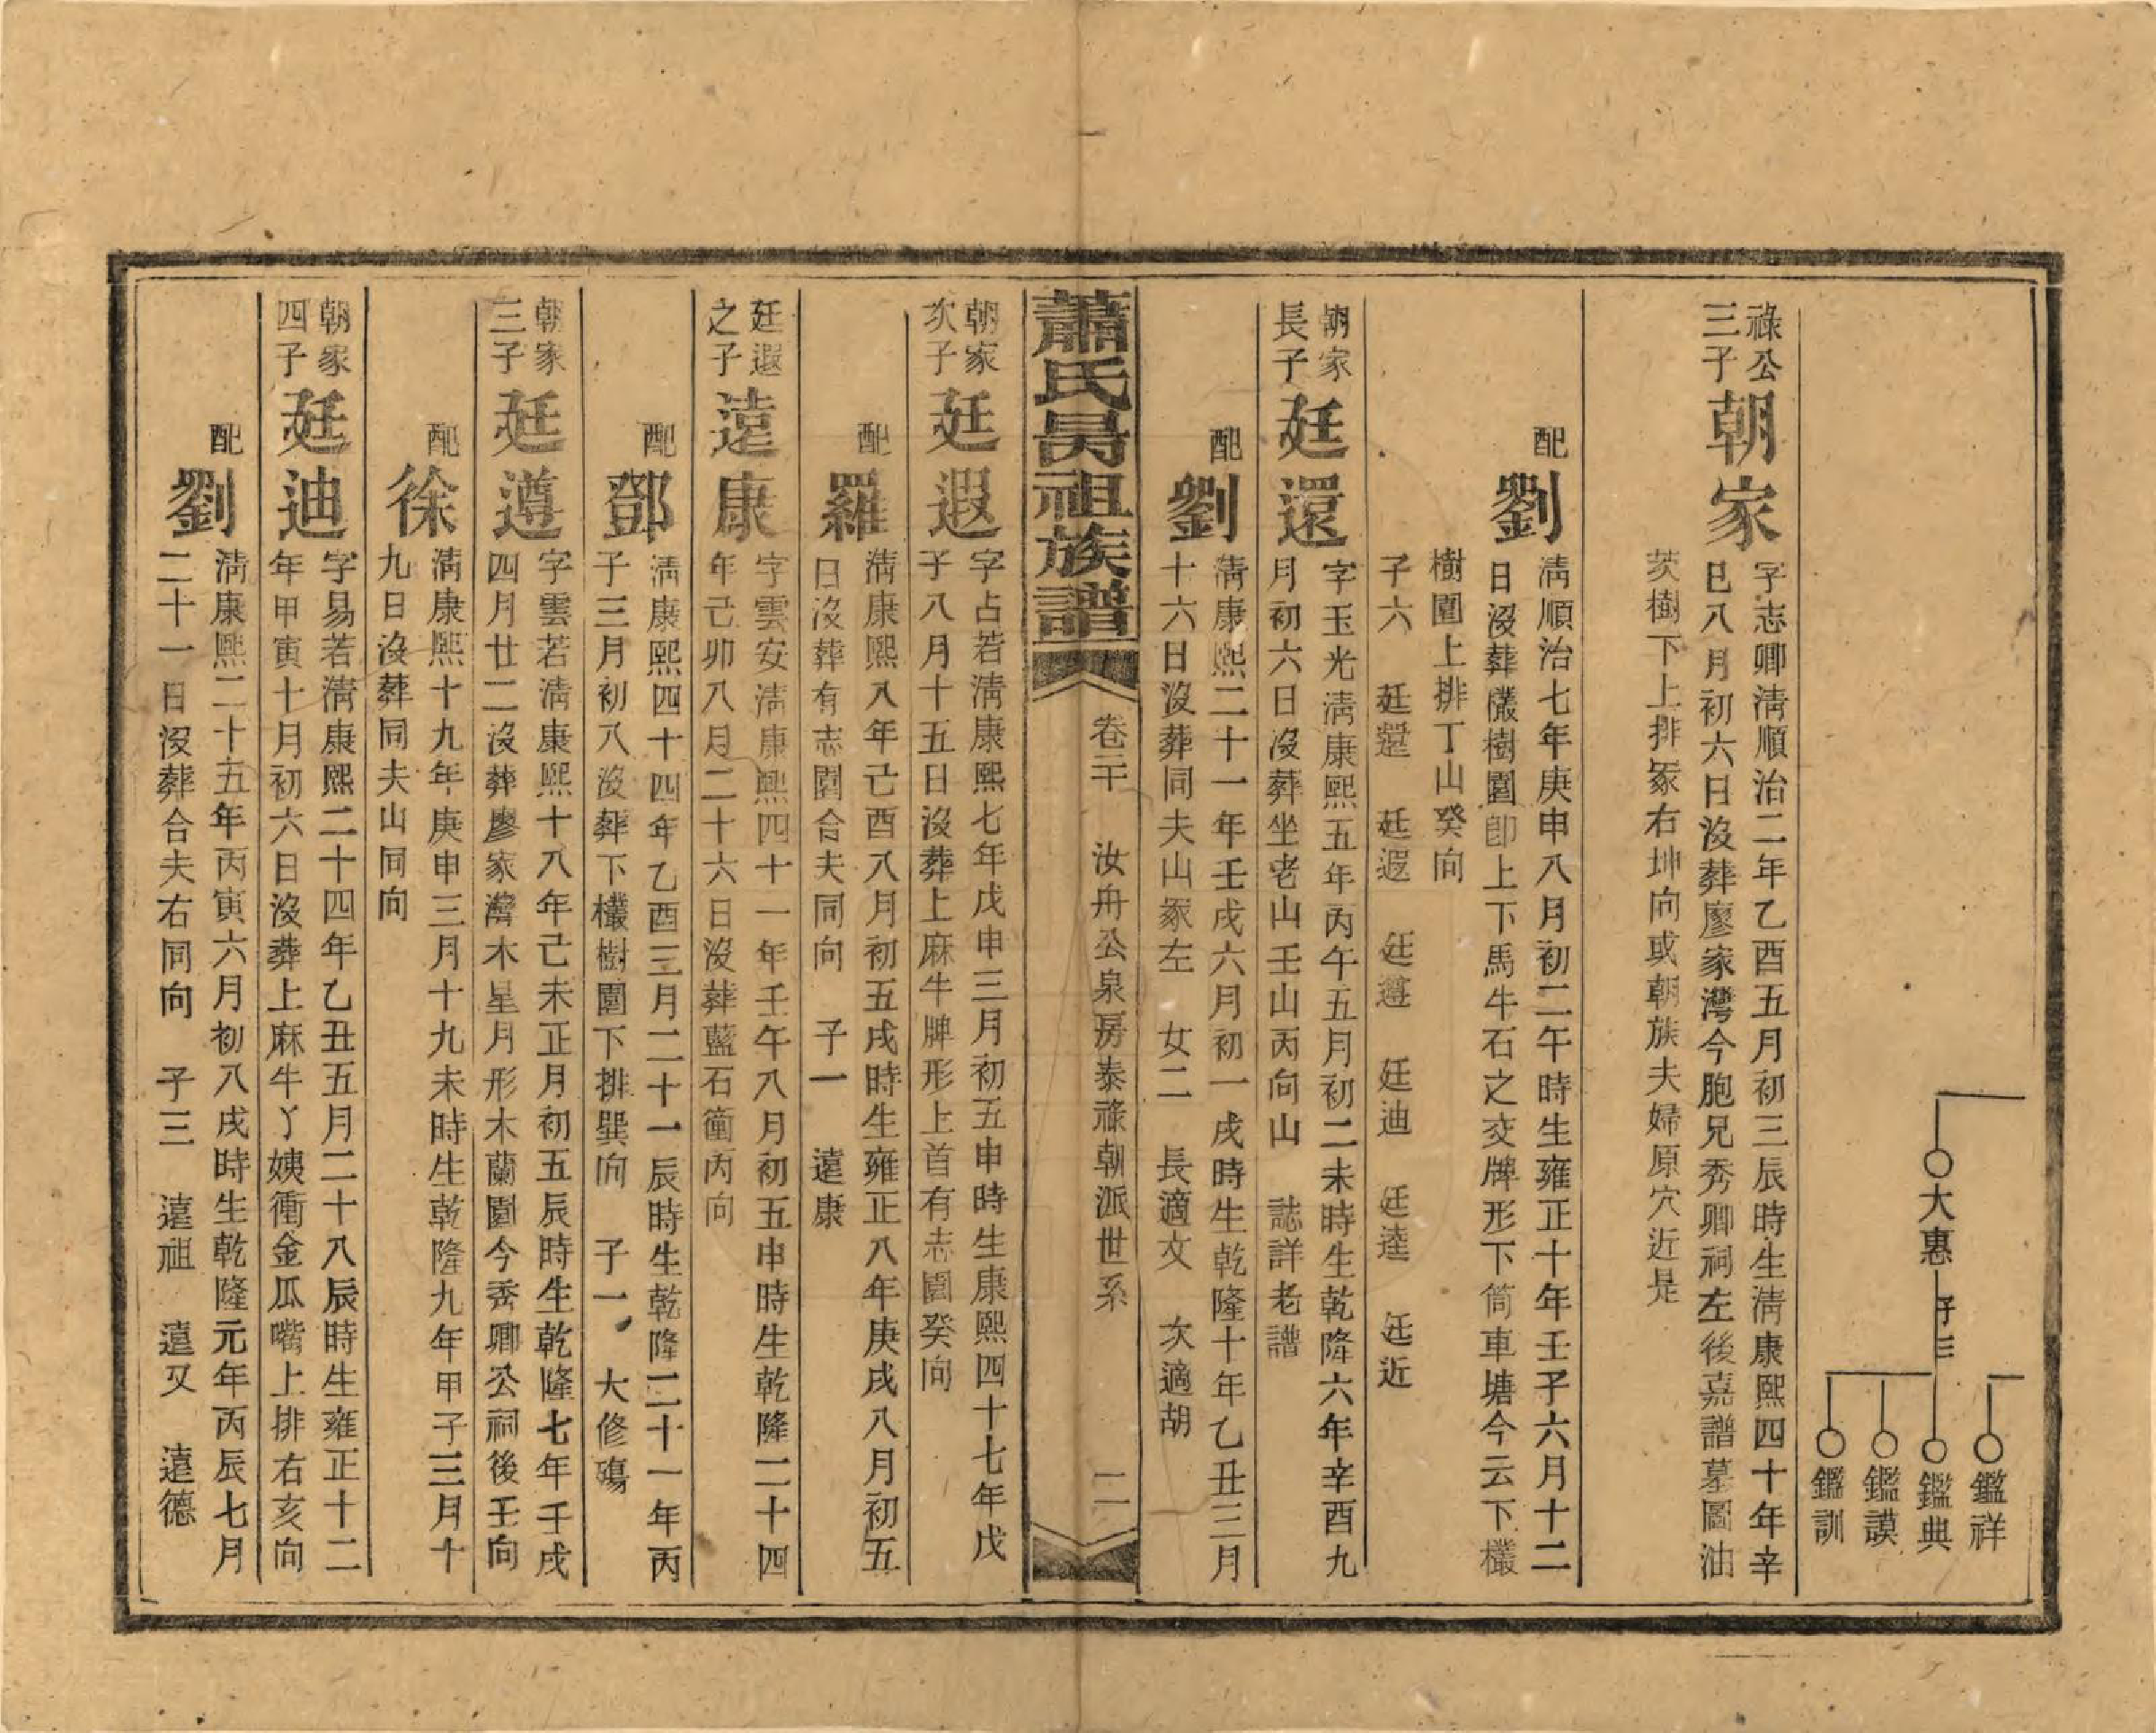 大惠 子三
鑑祥
鑑典
鑑謨
鑑訓
祿公
三子
朝家
字志卿清順治二年乙酉五月初三辰時生清康熙四十年辛
巳八月初六日沒葬廖家灣今胞兄秀卿祠左後嘉譜墓圖油
茨樹下上排冢右坤向或朝族夫婦原穴近是
配
劉
清順治七年庚申八月初二午時生雍正十年壬子六月十二
日沒葬欉樹園卽上下馬牛石之交牌形下筒車塘今云下欉
樹園上排丁山癸向
子六 廷還 廷遐 廷遵 廷迪 廷逵 廷近
朝家
長子
廷還
字玉光清康熙五年丙午五月初二未時生乾隆六年辛酉九
月初六日沒葬坐老山壬山丙向山 誌詳老譜
配
劉
清康熙二十一年壬戌六月初一戌時生乾隆十年乙丑三月
十六日沒葬同夫山冢左 女二 長適文 次適胡
蕭氏昺祖族譜
卷二十 汝舟公泉房泰祿朝派世系
二
朝家
次子
廷遐
字占若清康熙七年戊申三月初五申時生康熙四十七年戊
子八月十五日沒葬上麻牛牌形上首有志園癸向
配
羅
清康熙八年己酉八月初五戌時生雍正八年庚戌八月初五
日沒葬有志園合夫同向 子一 遠康
廷遐
之子
遠康
字雲安清康熙四十一年壬午八月初五申時生乾隆二十四
年己卯八月二十六日沒葬藍石衝丙向
配
鄧
清康熙四十四年乙酉三月二十一辰時生乾隆二十一年丙
子三月初八沒葬下欉樹園下排巽向 子一 大修殤
朝家
三子
廷遵
字雲若清康熙十八年己未正月初五辰時生乾隆七年壬戌
四月廿二沒葬廖家灣木星月形木蘭園今秀卿公祠後壬向
配
徐
清康熙十九年庚申三月十九未時生乾隆九年甲子三月十
九日沒葬同夫山同向
朝家
四子
廷迪
字易若清康熙二十四年乙丑五月二十八辰時生雍正十二
年甲寅十月初六日沒葬上麻牛丫姨衝金瓜嘴上排右亥向
配
劉
清康熙二十五年丙寅六月初八戌時生乾隆元年丙辰七月
二十一日沒葬合夫右同向 子三 遠祖 遠又 遠德